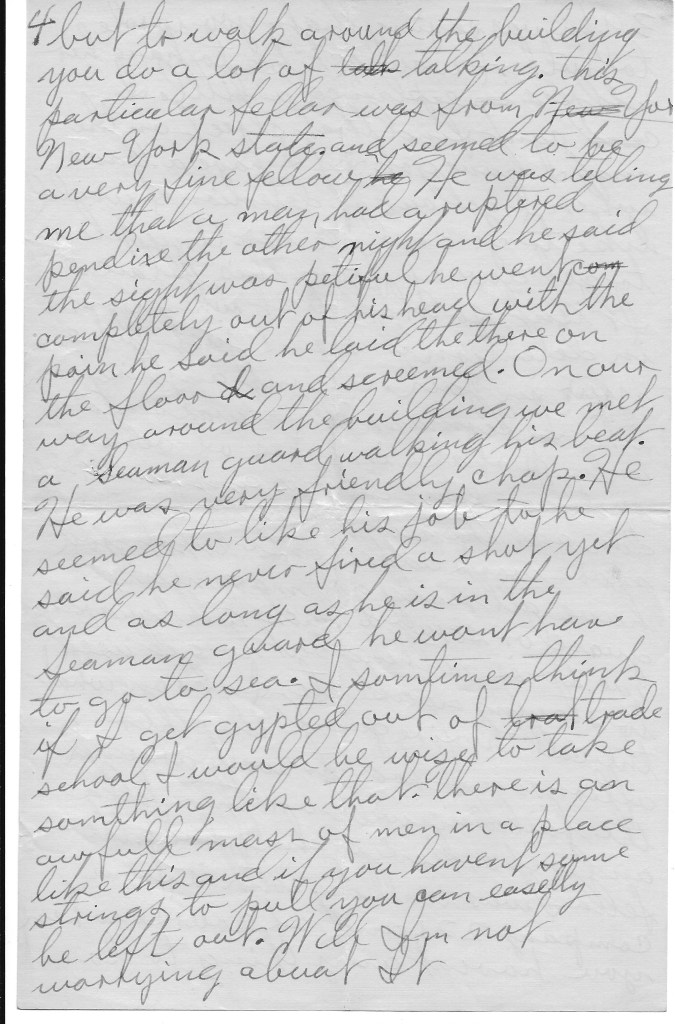 4 but to walk around the building
you do a lot of talk talking. this
particular fellar was from New Yor
New York state. and seemed to be
a very fine fellow he He was telling
me that a man had a ruptered
pendixe the other night and he said
the sight was petiful he went com
completely out of his head with the
pain he said he laid the there on
the floor and screemed. On our
way around the building we met
a Seaman guard walking his beat.
He was very friendly chap. He
seemed to like his job to he
said he never fired a shot yet
and as long as he is in the
Seamans guard he wont have
to go to sea. I somtimes think
if I get gypted out of trade
school I would be wise to take
somthing like that. there is an
awfull mass of men in a place
like this and if you havent some
strings to pull you can easelly
be left out. Well I'm not
worrying abuat It